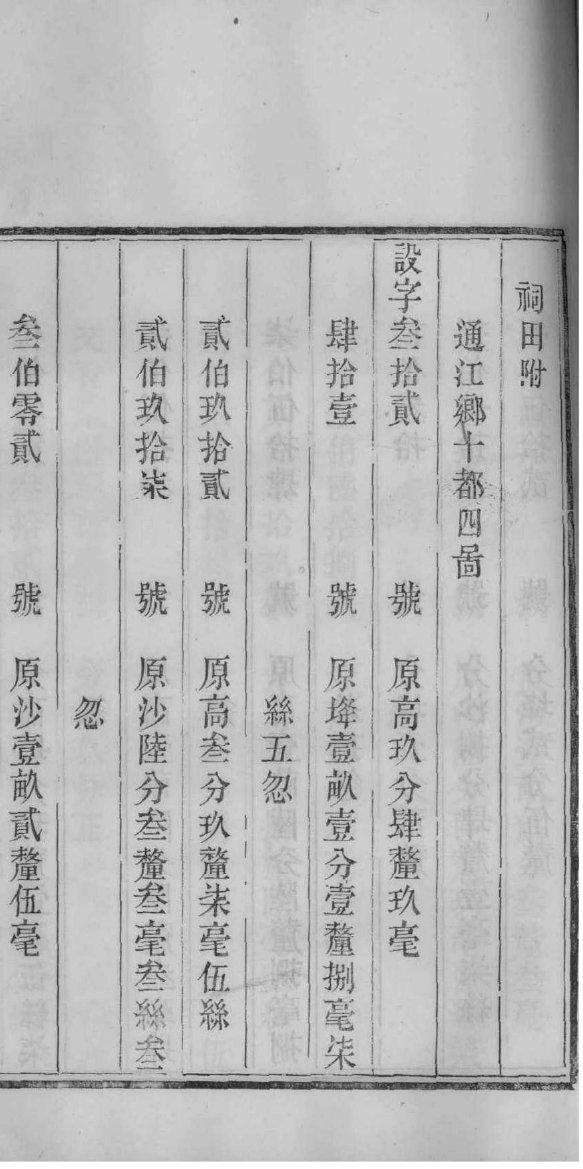 祠田附
通江鄉十都四啚
設字叁拾貳 號 原高玖分肆釐玖毫
肆拾壹 號 原埄壹畝壹分壹釐捌毫柒
絲五忽
貳伯玖拾貳 號 原高叁分玖釐柒毫伍絲
貳伯玖拾柒 號 原沙陸分叁釐叁毫叁絲叁
忽
叁伯零貳 號 原沙壹畝貳釐伍毫